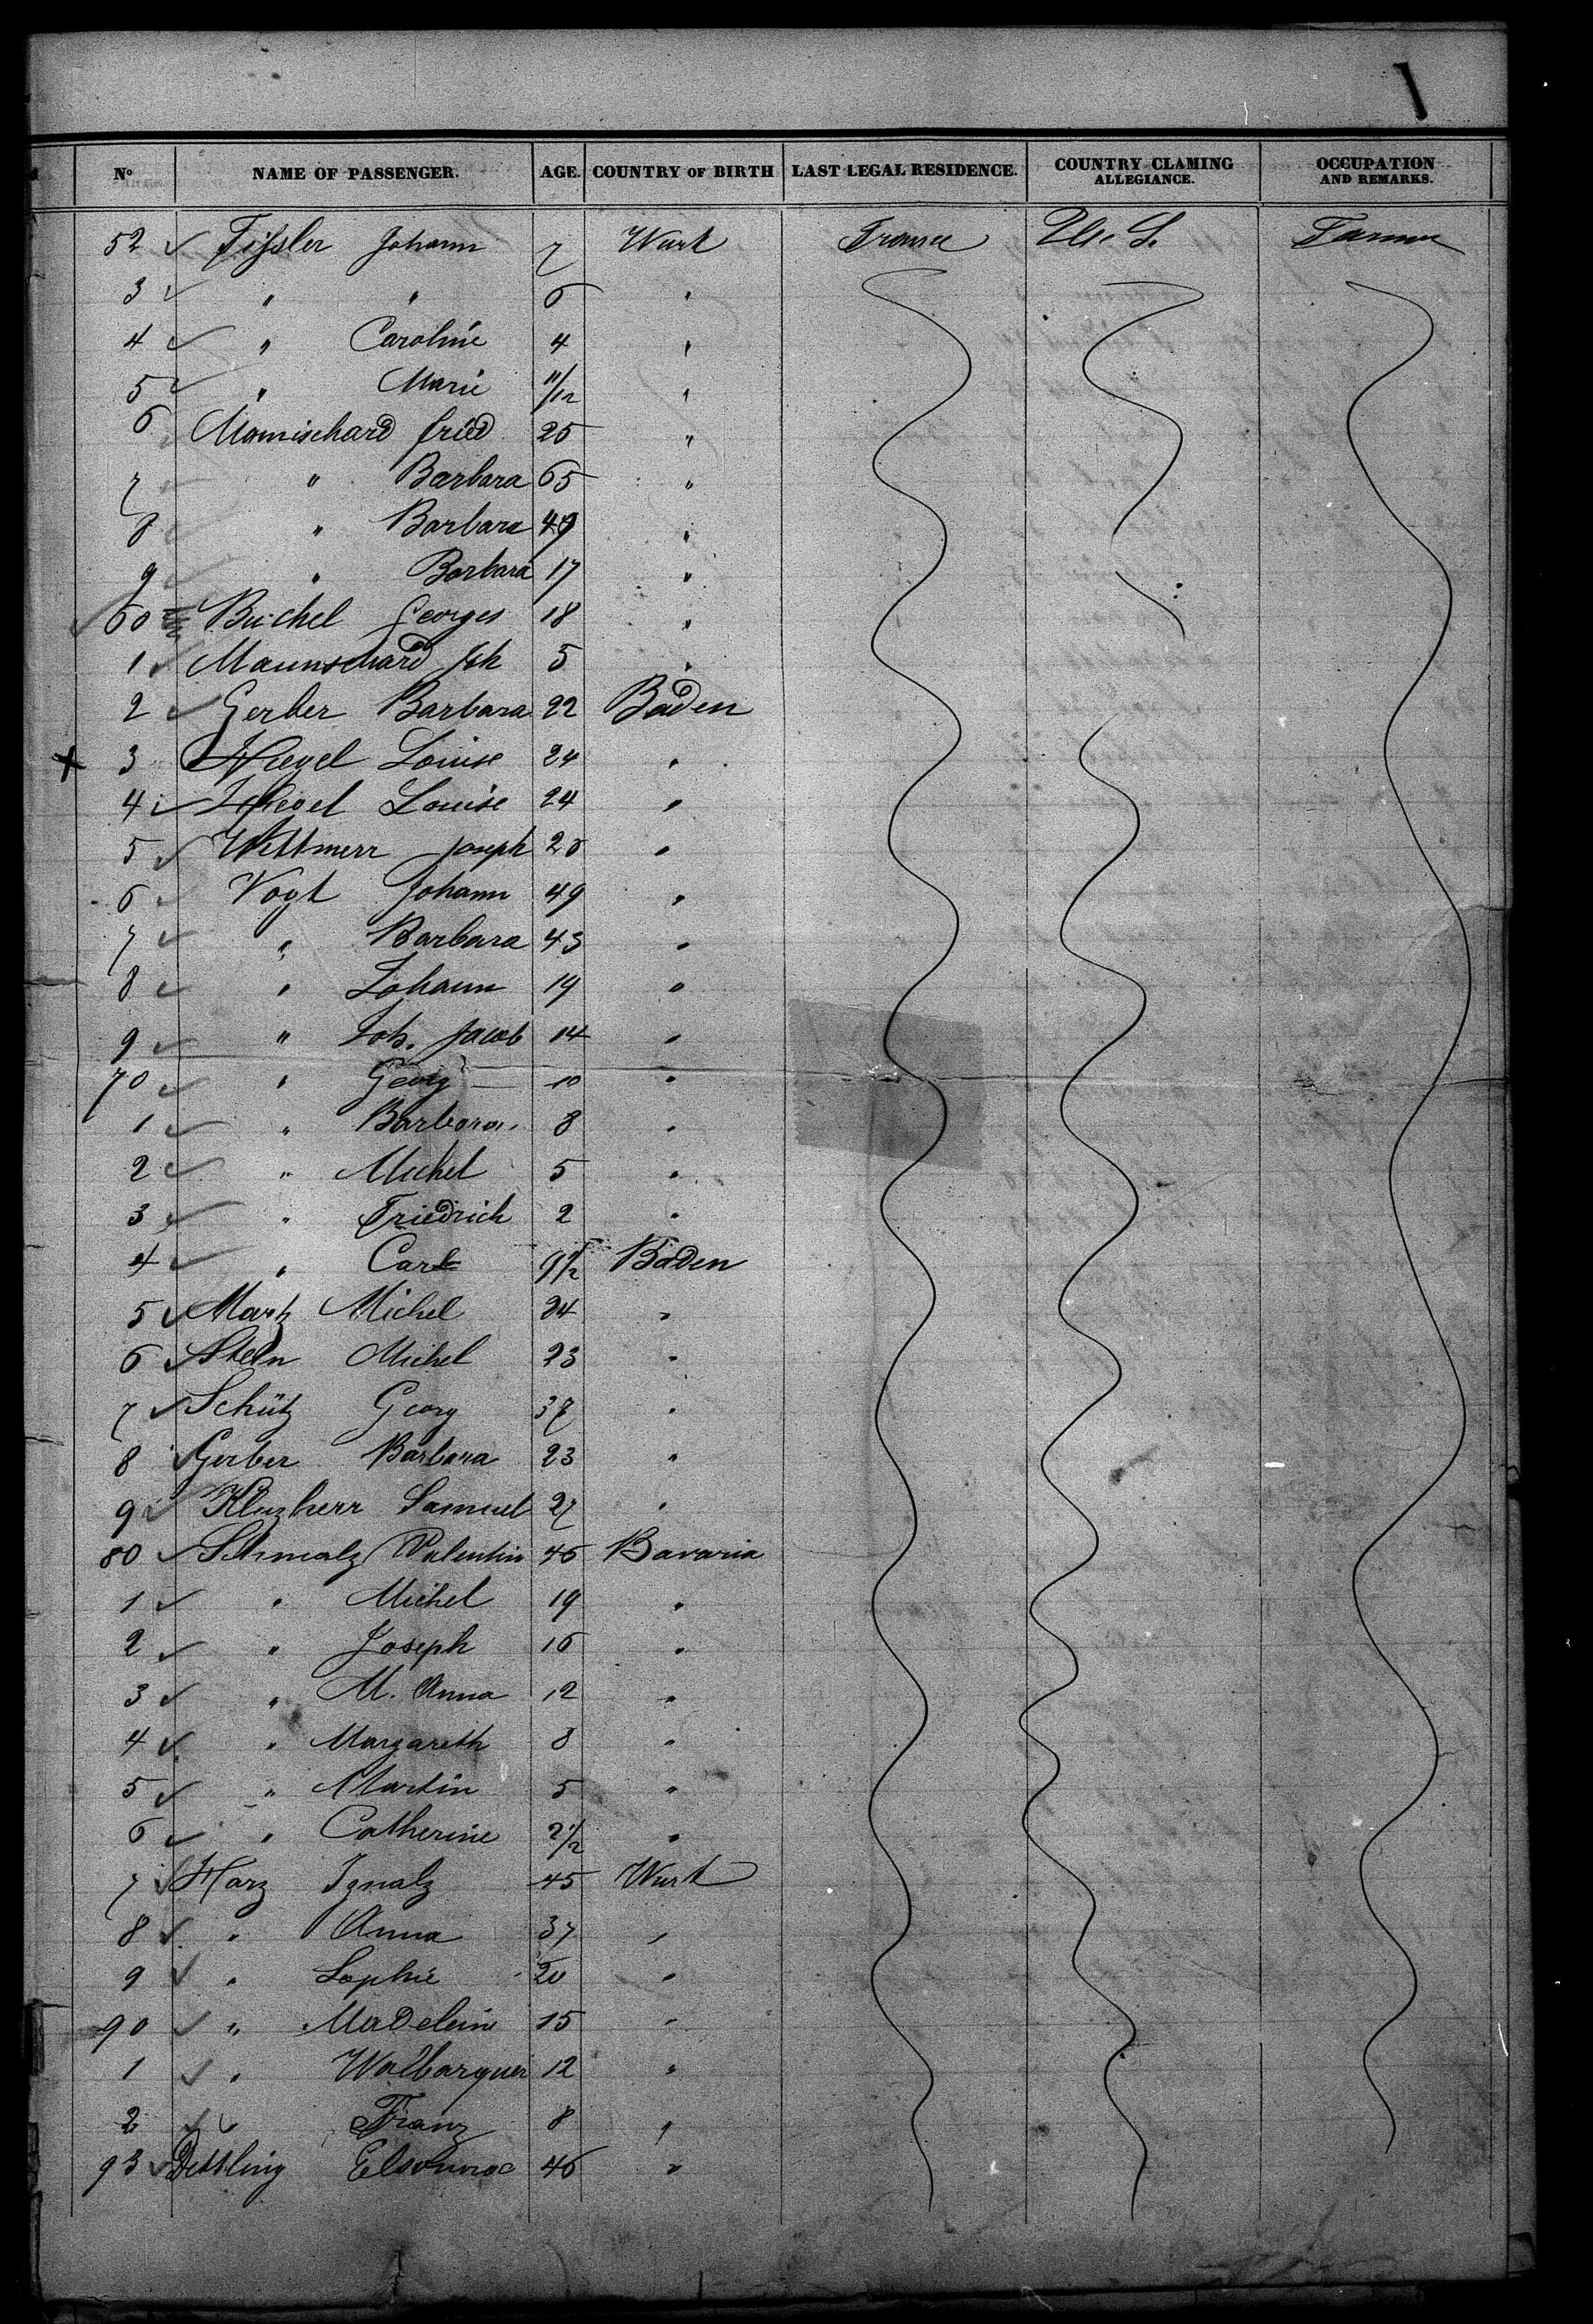 No NAME OF PASSENGER. AGE. COUNTRY OF BIRTH LAST LEGAL RESIDENCE. COUNTRY CLAMING ALLEGIANCE. OCCUPATION AND REMARKS.
52 Fissler Johann 7 Wurt France U. S. Farmer
3 " " 6 "
4 " Caroline 4 "
5 " Marie 11/12 "
6 fried 25 "
7 " Barbara 65 "
8 " Barbara 49 "
9 " Barbara 17 "
60 Buchel Georges 18 "
1 Maunschard Joh 5 "
2 Gerber Barbara 22 Baden
3 Louise 24 "
4 Louise 24 "
5 Wittmerr Joseph 26 "
6 Vogt Johann 49 "
7 " Barbara 43 "
8 " Johann 19 "
9 " Joh. Jacob 14 "
70 " Georg 10 "
1 " Barbara 8 "
2 " Michel 5 "
3 " Friedrich 2 "
4 " Carl Baden
5 Martz Michel 24 "
6 Stein Michel 23 "
7 Schütz Georg 37 "
8 Gerber Barbara 23 "
9 Samuel 27 "
80 Schmalz Valentin 46 Bavaria
1 " Michel 19 "
2 " Joseph 16 "
3 " M. Anna 12 "
4 " Margareth 8 "
5 " Martin 5 "
6 " Catherine 2 1/2 "
7 Harz Ignatz 45 Wurt
8 " Anna 37 "
9 " Sophie 20 "
90 " Madelein 15 "
1 " 12 "
2 " Franz 8 "
93 Dettling 46 "